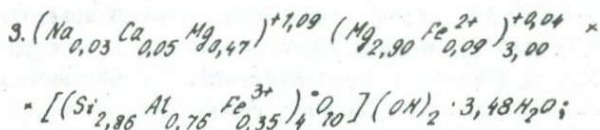 3. (Na₀,₀₃ Ca₀,₀₅ Mg₀,₄₇)⁺¹,⁰⁹ (Mg₂,₉₀ Fe²⁺₀,₀₉)⁺⁰,⁰⁴₃,₀₀ ×
× [(Si₂,₈₆ Al₀,₇₆ Fe³⁺₀,₃₅)₄ O₁₀] (OH)₂ · 3,48H₂O;